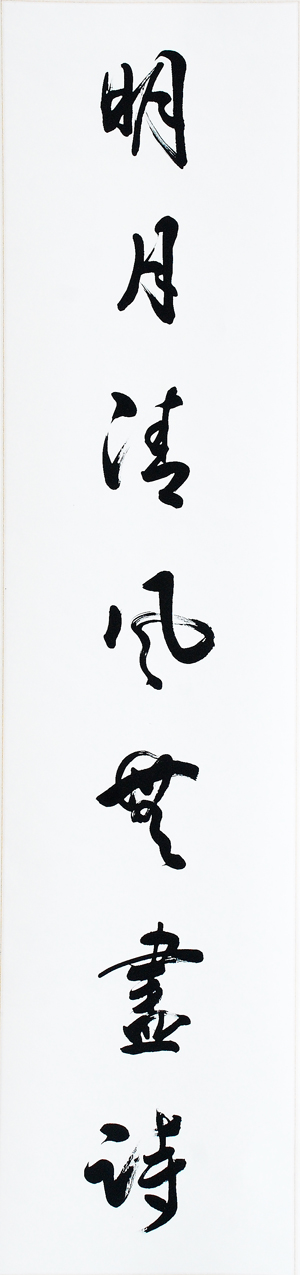 明月清風無盡詩